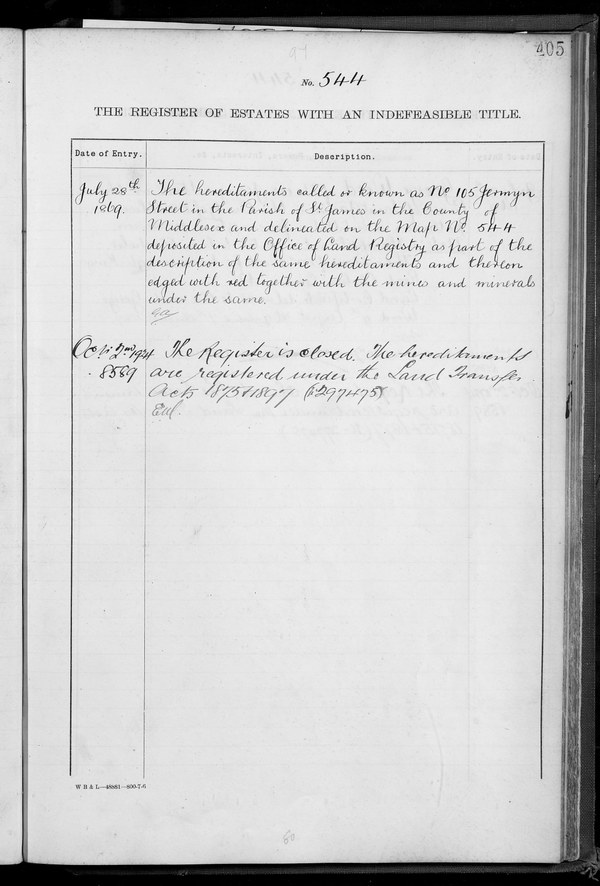 405
No. 544
THE REGISTER OF ESTATES WITH AN INDEFEASIBLE TITLE.
Date of Entry. Description.
July 28th The hereditaments called or known as No 105 Jermyn
1869. Street in the Parish of St James in the County of
Middlesex and delineated on the Map No 544
deposited in the Office of Land Registry as part of the
description of the same hereditaments and thereon
edged with red together with the mines and minerals
under the same.
Octr 2nd 1924 The Register is closed. The hereditaments
8589 are registered under the Land Transfer
Acts 1875 & 1897 (297475)
W B & L—48861—800-7-6